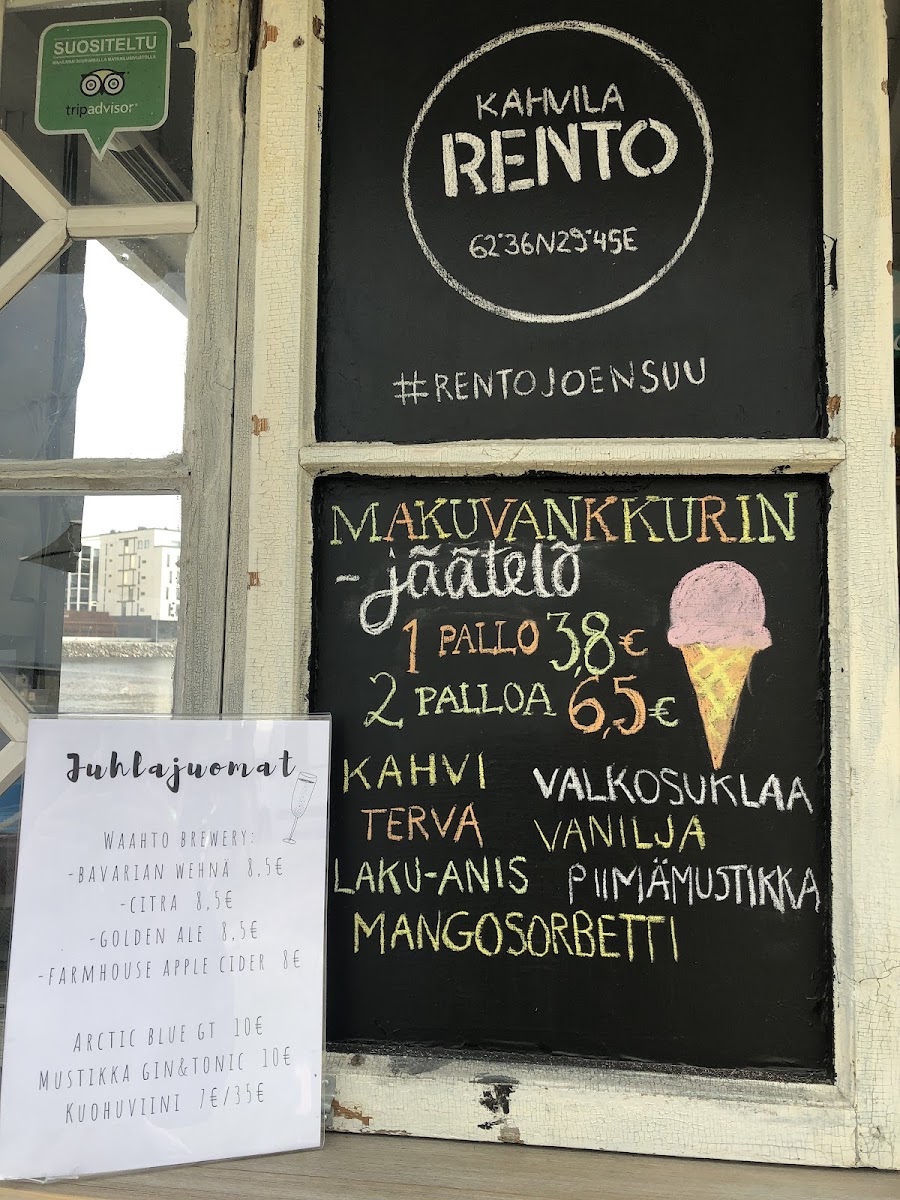 SUOSITELTU
tripadvisor®
KAHVILA
RENTO
62°36N29°45E
#RENTOJOENSUU
MAKUVANKKURIN
-jäätelö
1 PALLO 3,8€
2 PALLOA 6,5€
KAHVI
VALKOSUKLAA
TERVA
VANILJA
LAKU-ANIS
PIIMÄMUSTIKKA
MANGOSORBETTI
Juhlajuomat
WAAHTO BREWERY:
-BAVARIAN WEHNÄ 8,5€
-CITRA 8,5€
-GOLDEN ALE 8,5€
-FARMHOUSE APPLE CIDER 8€
ARCTIC BLUE GT 10€
MUSTIKKA GIN&TONIC 10€
KUOHUVIINI 7€/35€